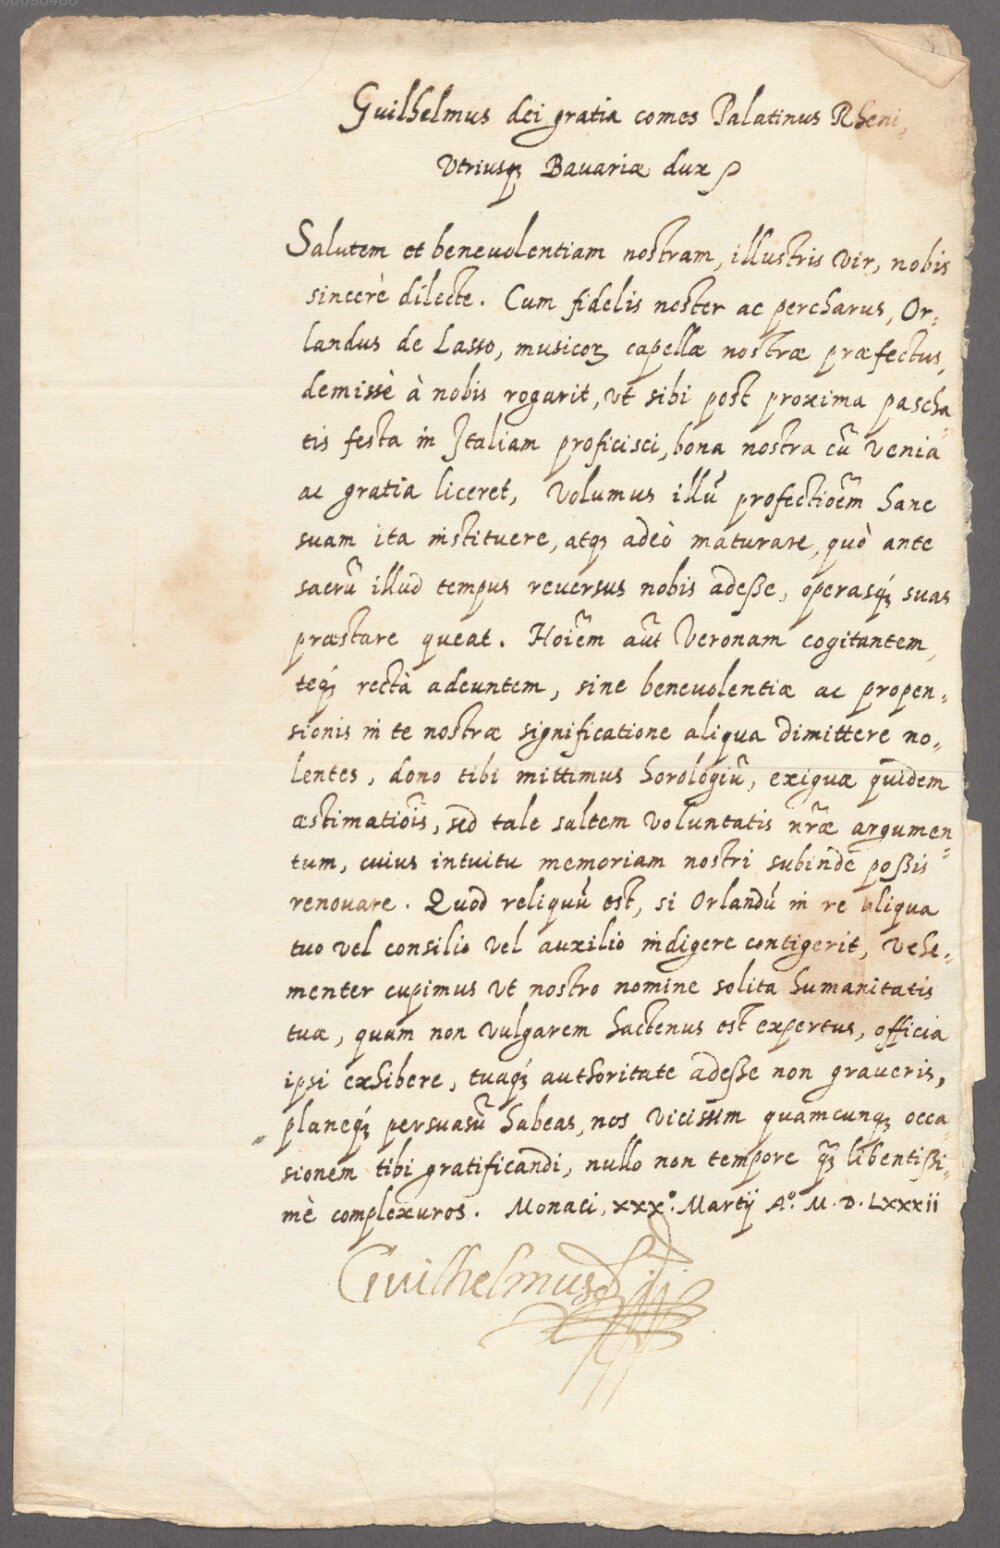 00090468
Guilhelmus dei gratia comes Palatinus Rheni,
Vtriusqꝫ Bauariæ dux
Salutem et beneuolentiam nostram, illustris vir, nobis
sincerè dilecte. Cum fidelis noster ac percharus, Or-
landus de Lasso, musicoꝝ capellæ nostræ præfectus,
demissè à nobis rogarit, vt sibi post proxima pascha-
tis festa in Italiam proficisci, bona nostra cū venia
ac gratia liceret, Volumus illū profectiōēm hanc
suam ita instituere, atqꝫ adeò maturare, quò ante
sacrū illud tempus reuersus nobis adeße, operasqꝫ suas
præstare queat. Hoiēm aūt Veronam cogitantem,
teqꝫ rectà adeuntem, sine beneuolentiæ ac propen-
sionis in te nostræ significatione aliqua dimittere no-
lentes, dono tibi mittimus horologiū, exiguæ quidem
æstimatiōis, sed tale saltem voluntatis nr̄æ argumen-
tum, cuius intuitu memoriam nostri subinde poßis
renouare. Quod reliquū est, si Orlandū in re aliqua
tuo vel consilio vel auxilio indigere contigerit, vehe-
menter cupimus vt nostro nomine solita humanitatis
tuæ, quam non vulgarem hactenus est expertus, officia
ipsi exhibere, tuaqꝫ authoritate adeße non graueris,
planeqꝫ persuasū habeas, nos vicissim quamcunqꝫ occa-
sionem tibi gratificandi, nullo non tempore qꝫ libentißi-
mè complexuros. Monaci, xxxº. Martij Aº. M. D. LXXXii
Guilhelmus